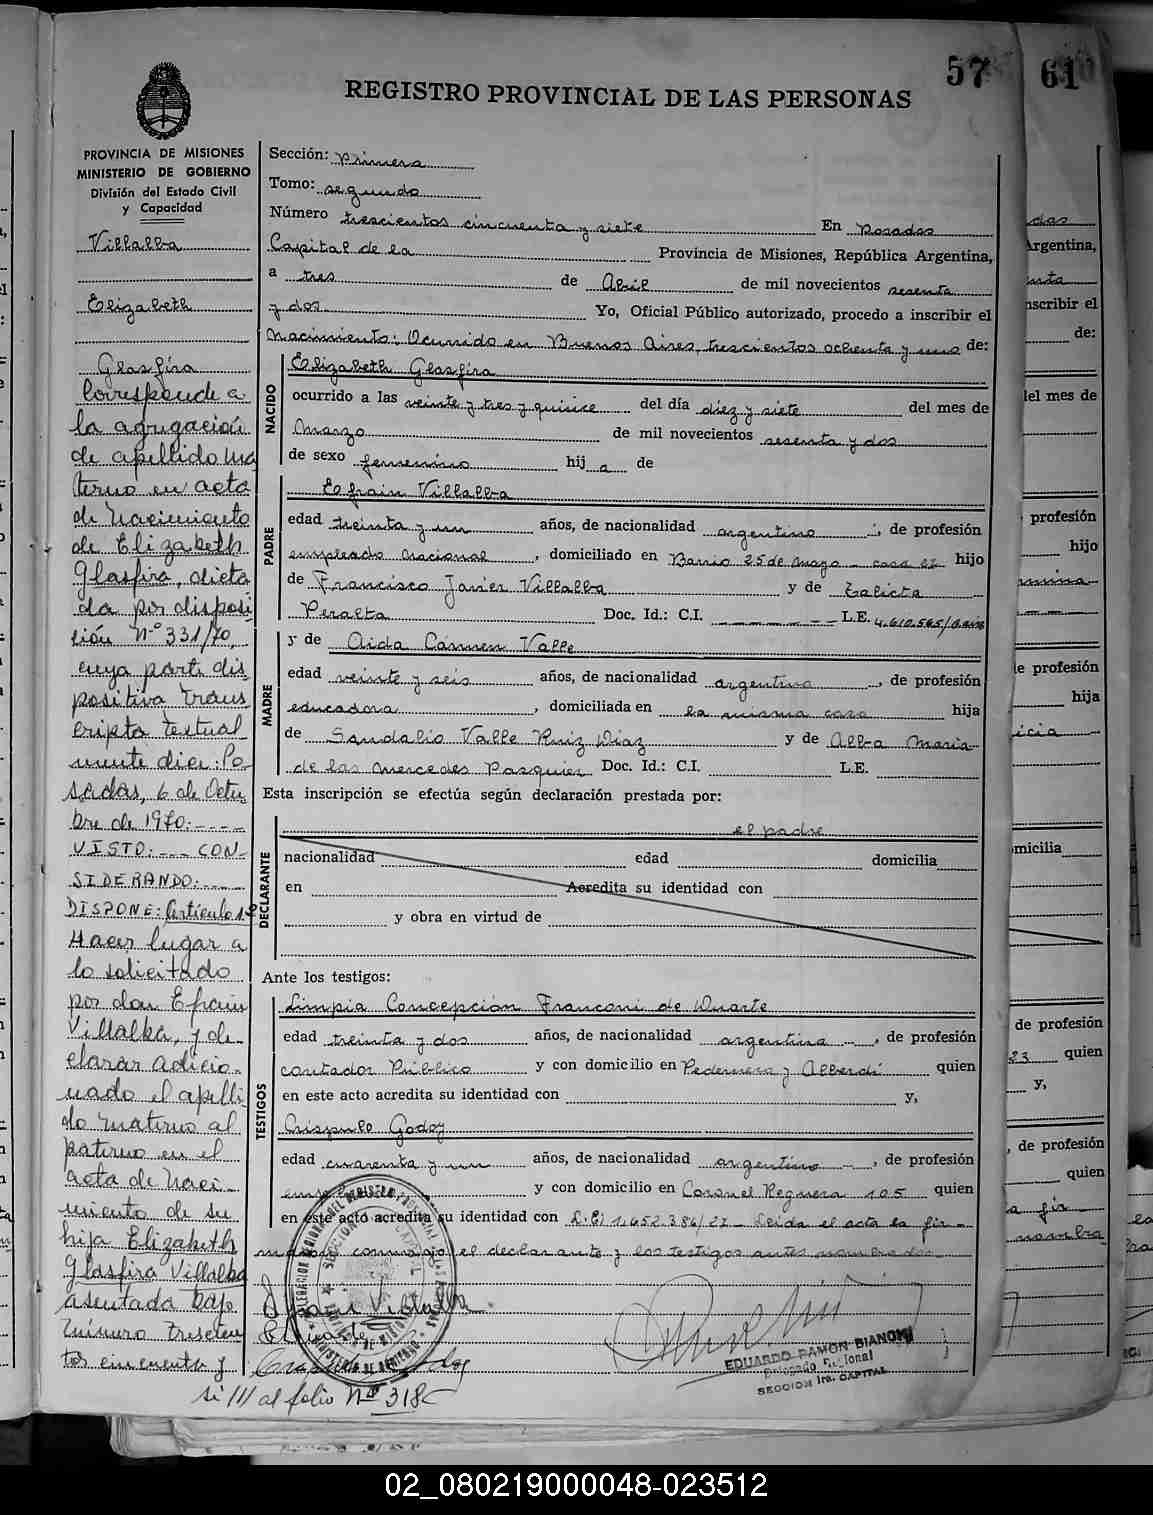 57
61
REGISTRO PROVINCIAL DE LAS PERSONAS
PROVINCIA DE MISIONES
MINISTERIO DE GOBIERNO
División del Estado Civil
y Capacidad
Villalba
Elizabeth
Glasfira
Corresponde a
la agregación
de apellido ma
terno en acta
de Nacimiento
de Elizabeth
Glasfira, dicta
da por disposi
ción Nº 331/70,
cuya parte dis
positiva trans
cripta textual
mente dice: Po
sadas, 6 de Octu
bre de 1970:----
VISTO:--- CON-
SIDERANDO:----
DISPONE: Artículo 1º
Hacer lugar a
lo solicitado
por don Efrain
Villalba, y de-
clarar adicio-
nado el apelli-
do materno al
paterno en el
acta de Naci-
miento de su
hija Elizabeth
Glasfira Villalba
asentada bajo
número trescien
tos cincuenta y
si /// al folio Nº 318
Sección: primera
Tomo: segundo
Número trescientos cincuenta y siete En Posadas
Capital de la Provincia de Misiones, República Argentina,
a tres de Abril de mil novecientos sesenta
y dos Yo, Oficial Público autorizado, procedo a inscribir el
Nacimiento: Ocurrido en Buenos Aires, trescientos ochenta y uno de:
NACIDO
Elizabeth Glasfira
ocurrido a las veinte y tres y quince del día diez y siete del mes de
Marzo de mil novecientos sesenta y dos
de sexo femenino hij a de
PADRE
Efrain Villalba
edad treinta y un años, de nacionalidad argentino, de profesión
empleado nacional, domiciliado en Barrio 25 de Mayo - casa hijo
de Francisco Javier Villalba y de Talicta
Peralta Doc. Id.: C.I. ------- L.E. 4.610.565/
MADRE
y de Aida Cármen Valle
edad veinte y seis años, de nacionalidad argentina, de profesión
educadora, domiciliada en la misma casa hija
de Sandalio Valle Ruiz Diaz y de Alba Maria
de las Mercedes Pasquier Doc. Id.: C.I. L.E.
Esta inscripción se efectúa según declaración prestada por:
DECLARANTE
el padre
nacionalidad edad domicilia
en Acredita su identidad con
y obra en virtud de
Ante los testigos:
TESTIGOS
Limpia Concepción Franconi de Duarte
edad treinta y dos años, de nacionalidad argentina --, de profesión
contador Público y con domicilio en Pedernera y Alberdi quien
en este acto acredita su identidad con y,
Crispulo Godoy
edad cuarenta y un años, de nacionalidad argentino --, de profesión
y con domicilio en Coronel Reguera 105 quien
en este acto acredita su identidad con L.E) 1.652.386/27- Leida el acta la fir-
man conmigo el declarante y los testigos antes nombrados-
Efrain Villalba
EDUARDO RAMON BIANCHI
Delegado Regional
SECCION 1ra. CAPITAL
das
Argentina,
nta
inscribir el
de:
del mes de
profesión
hijo
de profesión
hija
icia
micilia
de profesión
23 quien
y,
, de profesión
quien
a fir-
nombra
02_080219000048-023512